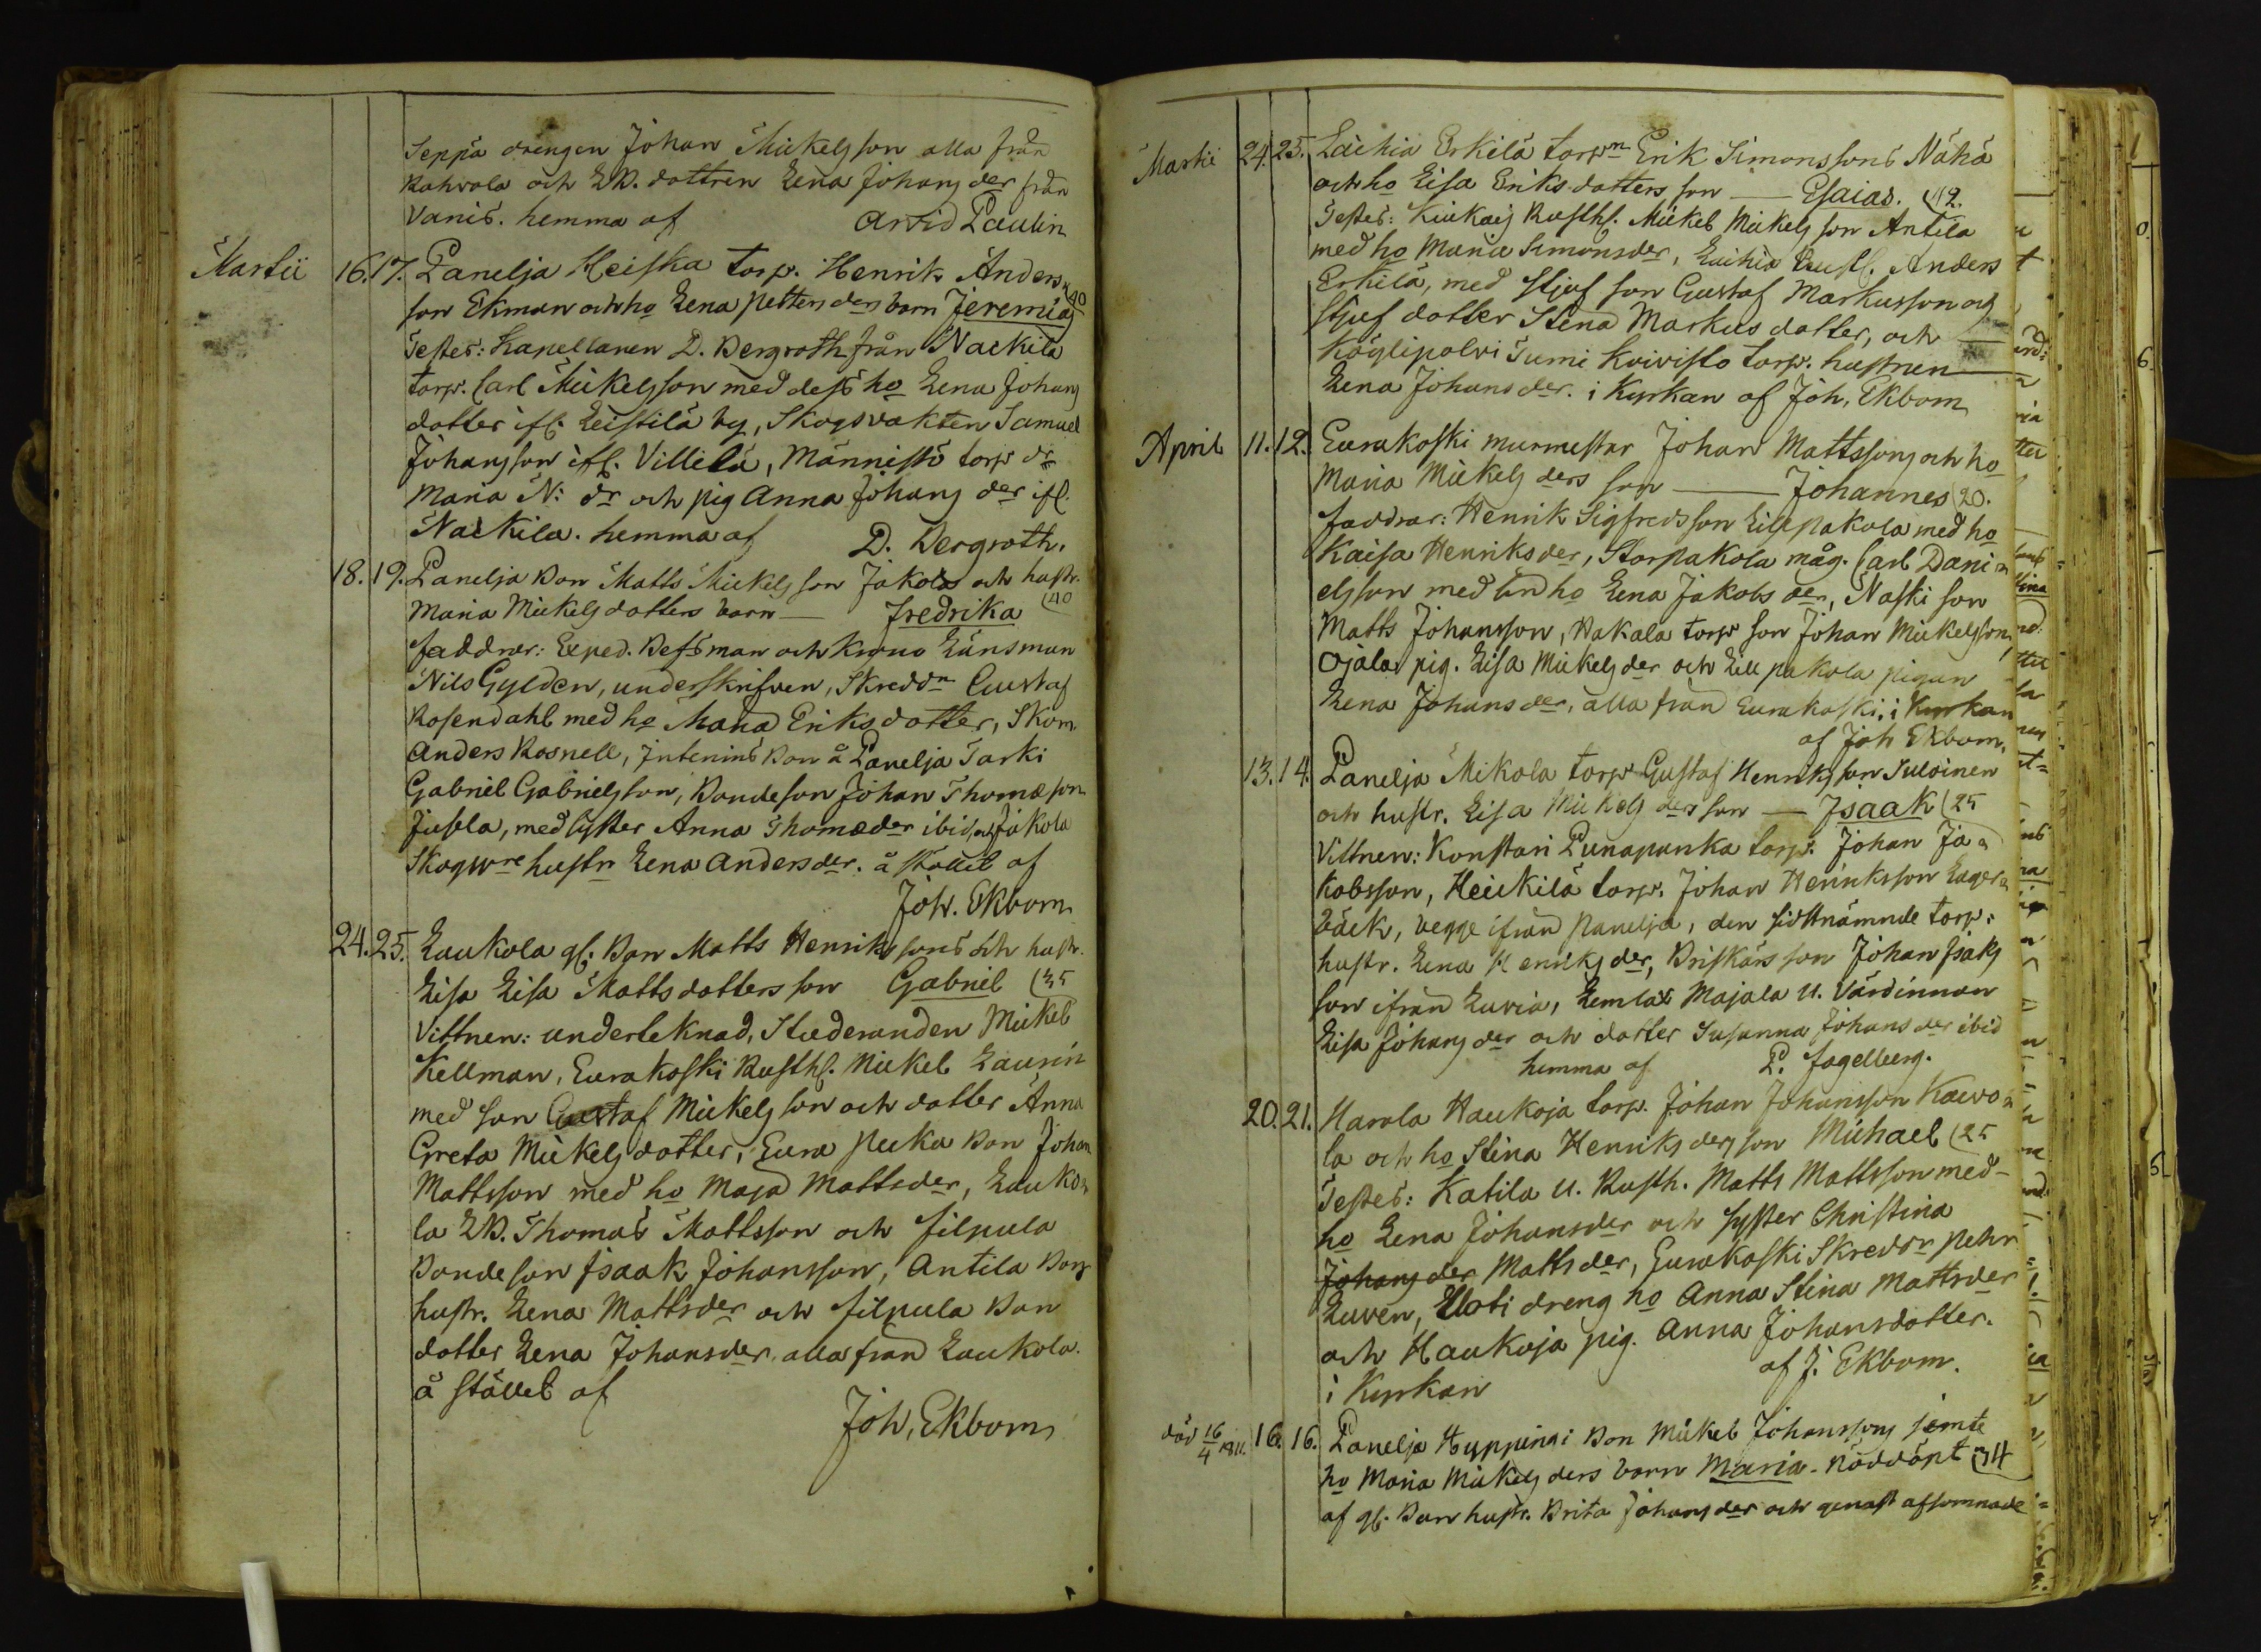 Seppä drengen Johan Mickelsson alla från
Kahvala och LB. dottren Lena Johans der från
Vanis. hemma af Arvid Paulin
Martii 16. 17. Panelja Heiska torp. Henrik Anders=
son Ekman och ho Lena Petters ders barn Jeremias (40
Testes: Kapellanen D. Bergroth från Nackila
torp. Carl Mickelsson med dess ho Lena Johans
dotter ifl. Leistilä by, Skogsvakten Samuel
Johansson ifl. Villilä, Männistö torp dr
Maria N: dr och pig Anna Johans der ifl.
Nackila. hemma af D. Bergroth.
18. 19. Panelja Bon Matts Mickelsson Jakola och hustr.
Maria Mickels dotters barn — Fredrika (40
faddrar: Exped. Befsman och Länsman
Nils Gylden, underskrifven, Skreddn Gustaf
Rosendahl med ho Maria Eriksdotter, Skom.
Anders Rosnell, Bon å Panelja Tarki
Gabriel Gabrielsson, Bondeson Johan Thomæson
Jusela, med syster Anna Thomæder ibid, och Jakola
hustr Lena Anders der. å stället af
Joh. Ekbom
24. 25. Laukola gl. Bon Matts Henrikssons och hustr.
Lisa Lisa Mattsdotters son Gabriel (35
Vittnen: underteknad, Studeranden Mickel
Kellman, Eurakoski Rusth. Mickel Laurin
med son Gustaf Mickelsson och dotter Anna
Greta Mickelsdotter, Eura Peuka Bon Johan
Mattsson med ho Maja Mattsder, Lauko=
la LB. Thomas Mattsson och Filpula
Bondeson Isaak Johansson, Antila Bon
hustr. Lena Mattsder och Filpula Bon
dotter Lena Johansder alla från Laukola.
å stället af
Joh. Ekbom
Martii 24. 25. Laihia Erkilä torpn Erik Simonssons Näkä
och ho Lisa Eriks dotters son — Esaias. (42.
Testes: Kiukais Rusth. Mickel Mickelsson Antila
med ho Maria Simonsder, Laihia Anders
Erkilä, med stjuf son Gustaf Markusson och
stjuf dotter Stena Markus dotter, och —
Köylipolvi Tumi Koivisto torp. hustrun —
Lena Johans der. i Kyrkan af Joh. Ekbom
April 11. 12. Eurakoski murmestar Johan Mattssons och ho
Maria Mickels ders son — Johannes (20.
faddrar: Henrik Sigfredsson Lillpakola med ho
Kaisa Henriksder, Storpakola måg. Carl Dani=
elsson med ho Lena Jakobs der, Naski son
Matts Johansson, Hakala torp son Johan Mickelsson,
Ojala pig. Lisa Mickelsder och Lill pakola pigan
Lena Johansder, alla från Eurakoski, i Kyrkan
af Joh Ekbom.
13. 14. Panelja Mikola torp Gustaf Henriksson Suloinen
och hustr. Lisa Mickels ders son — Isaak (25
Vittnen: Konstari Punapunka torp. Johan Ja=
kobsson, Heikilä torp. Johan Henriksson Lager=
bäck, begge ifrån Panelja, den sidstnämnde torp.
hustr. Lena Henriks der, Briskärs son Johan Isaks
son ifrån Luvia, Lemlax Majala U. Värdinnan
Lisa Johans der och dotter Susanna Johans der ibid
hemma af P. Fagelberg.
20. 21. Harola Haukoja torp. Johan Johansson Kaevo=
la och ho Stina Henriks ders son Michael (25
Testes: Katila U. Rusth. Matts Mattsson med-
ho Lena Johansder och syster Christina
Johans der Mattsder, Eurakoski Skreddr Pehr
Luven, Uoti dreng ho Anna Stina Mattsder
och Haukoja pig. Anna Johansdotter.
i Kyrkan af J. Ekbom.
död 16/4 1811. 16. 16. Panelja Huppingi Bon Mickel Johanssons jemte
ho Maria Mickels ders barn Maria. Nöddöpt (34
af gl. Bon hustr. Brita Johansder och genast afsomnade